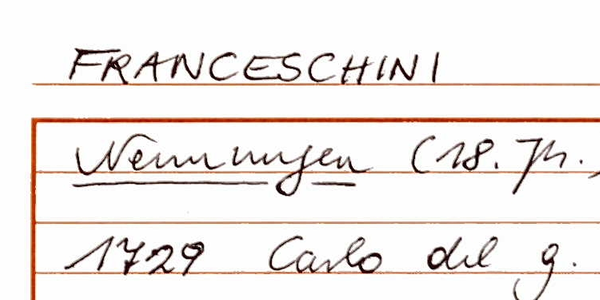 FRANCESCHINI
Nennungen (18. Jh.,
1729 Carlo del g.